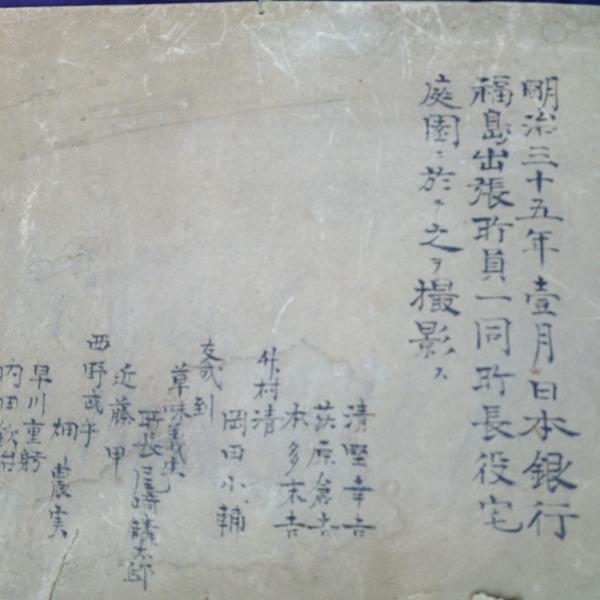 明治三十五年壹月日本銀行
福島出張所員一同所長役宅
庭園ニ於テ之ヲ撮影ス
清野幸吉
荻原倉吉
本多末吉
竹村清
岡田小輔
到
草味義忠
所長尾崎麟太郎
近藤甲
西野
畑農実
早川重
内田